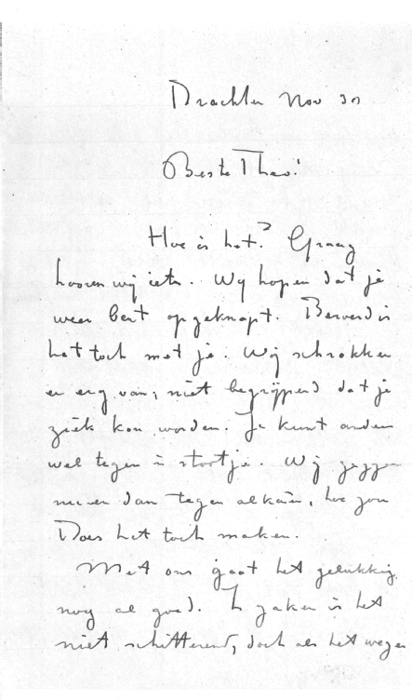 Drachten Nov 30
Beste Theo!
Hoe is het? Graag
hooren wij iets. Wij hopen dat je
weer bent opgeknapt. Beroerd is
het toch met je. Wij schrokken
er erg van, niet begrijpend dat je
ziek kon worden. Je kunt anders
wel tegen 'n stootje. Wij zeggen
dan tegen elkaar, hoe zou
Does het toch maken.
Met ons gaat het gelukkig
nog al goed. In zaken is het
niet schitterend, doch als het wegen